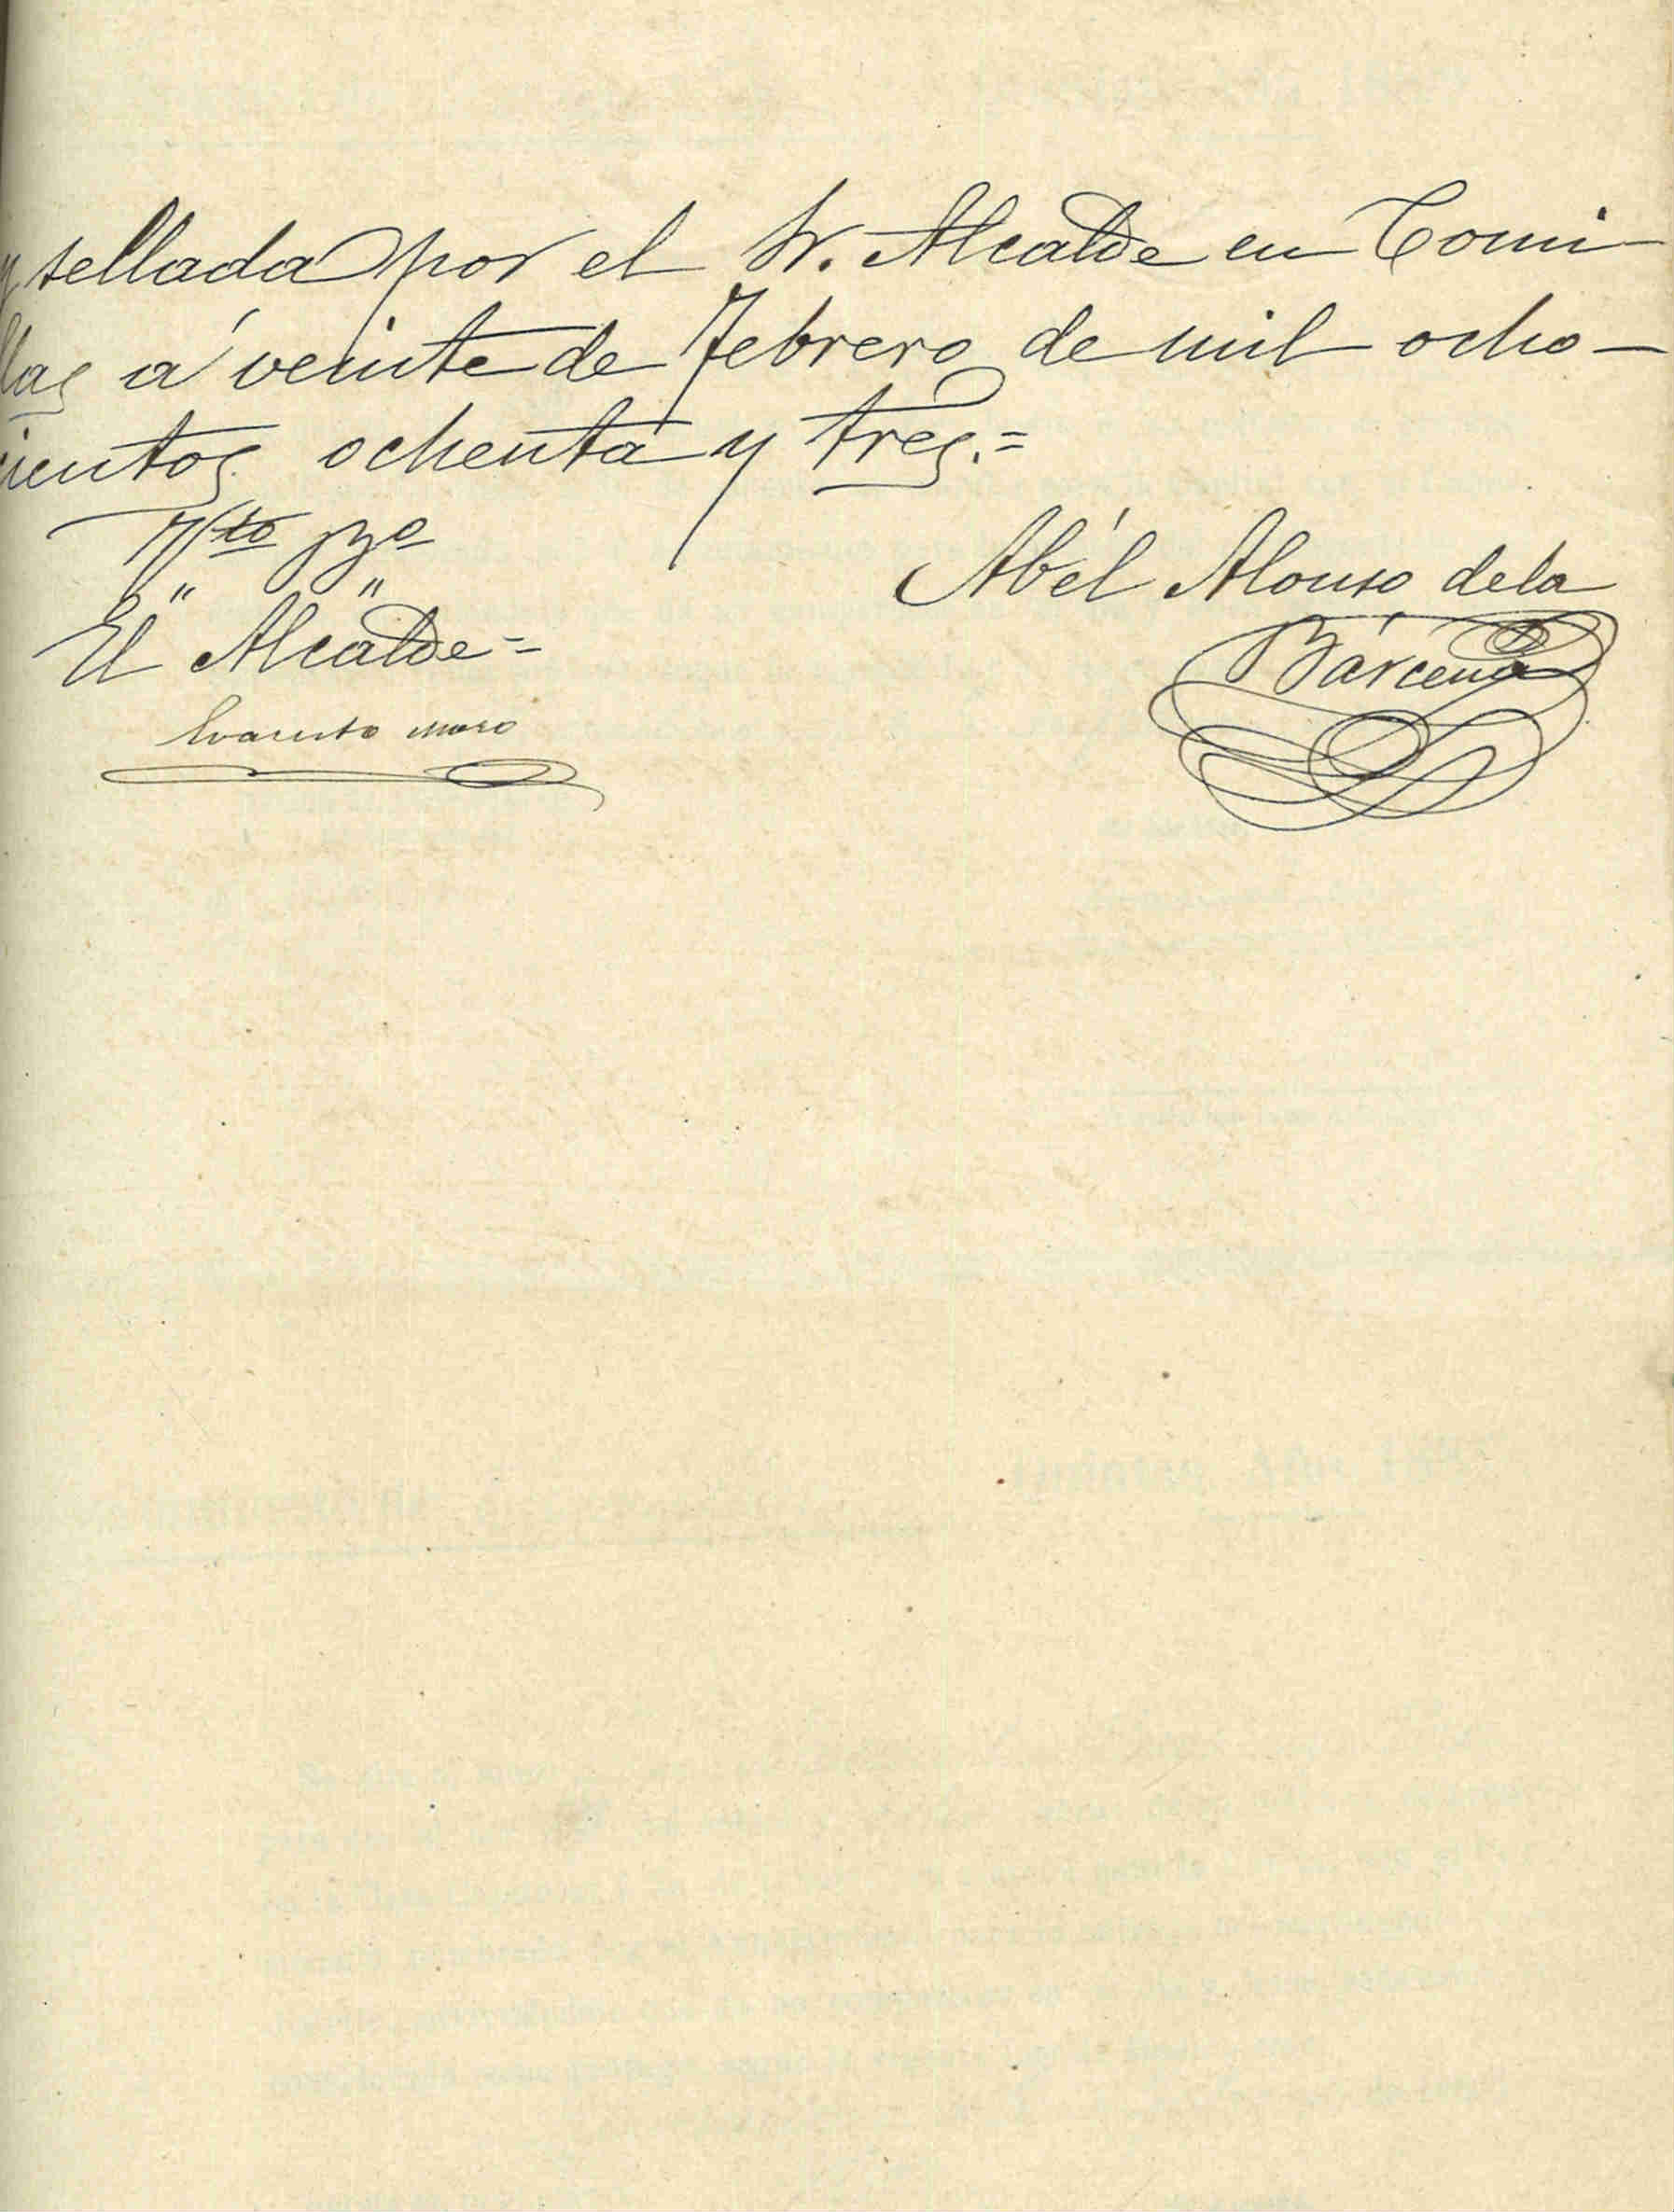 y sellada por el Sr. Alcalde en Comi-
llas á veinte de Febrero de mil ocho-
cientos ochenta y tres.=
Vto Bno
El Alcalde=
Evaristo Moro
Abél Alonso de la
Bárcena